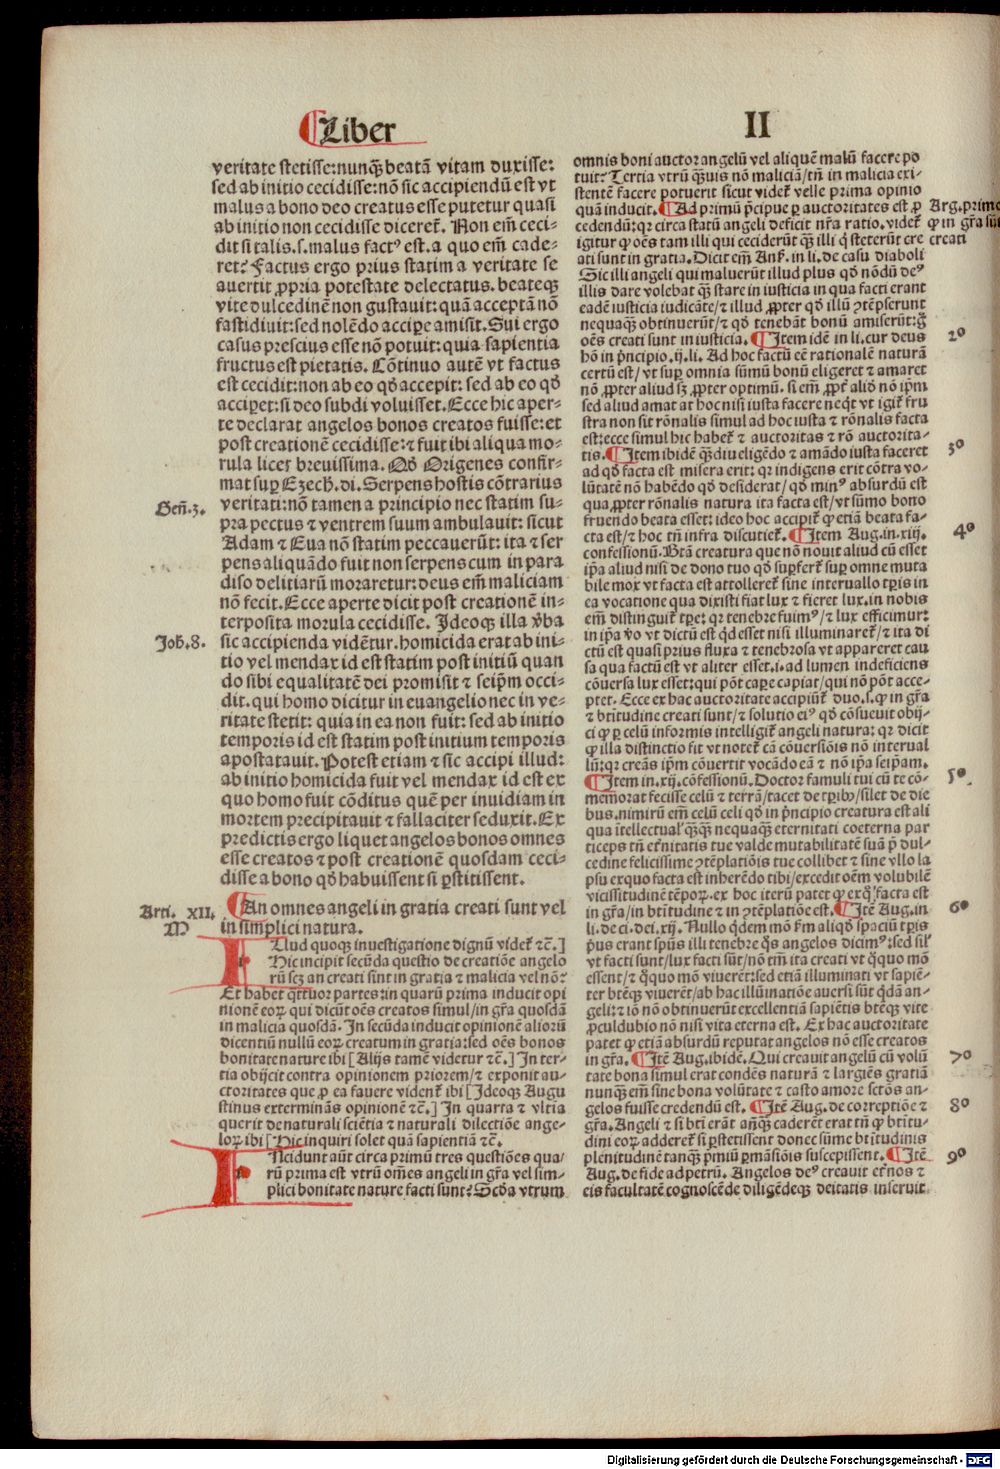 Liber
II
veritate stetisse: nunq̃ beatã vitam duxisse:
sed ab initio cecidisse: nõ sic accipiendũ est vt
malus a bono deo creatus esse putetur quasi
ab initio non cecidisse diceret̃. Non em̃ ceci⸗
dit si talis .s. malus factꝰ est. a quo em̃ cade⸗
ret? Factus ergo prius statim a veritate se
auertit ꝓpria potestate delectatus. beateqꝫ
vite dulcedinẽ non gustauit: quã acceptã nõ
fastidiuit: sed nolẽdo accipe amisit. Sui ergo
casus prescius esse nõ potuit: quia sapientia
fructus est pietatis. Cõtinuo autẽ vt factus
est cecidit: non ab eo qđ accepit: sed ab eo qđ
acciperet: si deo subdi voluisset. Ecce hic aper⸗
te declarat angelos bonos creatos fuisse: et
post creationẽ cecidisse: ⁊ fuit ibi aliqua mo⸗
rula licet breuissima. Qđ Origenes confir⸗
mat sup Ezech. di. Serpens hostis cõtrarius
veritati: nõ tamen a principio nec statim su⸗
pra pectus ⁊ ventrem suum ambulauit: sicut
Adam ⁊ Eua nõ statim peccauerũt: ita ⁊ ser
pens aliquãdo fuit non serpens cum in para
diso delitiarũ moraretur: deus em̃ maliciam
nõ fecit. Ecce aperte dicit post creationẽ in⸗
terposita morula cecidisse. Ideoqꝫ illa ṽba
sic accipienda vidẽtur. homicida erat ab ini⸗
tio vel mendax id est statim post initiũ quan
do sibi equalitatẽ dei promisit ⁊ seip̃m occi⸗
dit. qui homo dicitur in euangelio nec in ve⸗
ritate stetit: quia in ea non fuit: sed ab initio
temporis id est statim post initium temporis
apostatauit. Potest etiam ⁊ sic accipi illud:
ab initio homicida fuit vel mendax id est ex
quo homo fuit cõditus quẽ per inuidiam in
mortem precipitauit ⁊ fallaciter seduxit. Ex
predictis ergo liquet angelos bonos omnes
esse creatos ⁊ post creationẽ quosdam ceci⸗
disse a bono qđ habuissent si ꝑstitissent.
Gen̄.3.
Joh.8.
Arti. XII.
M
An omnes angeli in gratia creati sunt vel
in simplici natura.
Illud quoqꝫ inuestigatione dignũ videt̃ ⁊c̃.]
Hic incipit secũda questio de creatiõe angelo
rũ scꝫ an creati sint in gratia ⁊ malicia vel nõ?
Et habet q̃ttuor partes: in quarũ prima inducit opi
nionẽ eoꝝ qui dicũt oẽs creatos simul / in gr̃a quosdã
in malicia quosdã. In secũda inducit opinionẽ alioꝝ
dicentiũ nullũ eoꝝ creatum in gratia: sed oẽs bonos
bonitate nature ibi [Alijs tamẽ videtur ⁊c̃.] In ter⸗
tia obijcit contra opinionem priorem / ⁊ exponit au⸗
ctoritates que ꝓ ea fauere vident̃ ibi [Ideoqꝫ Augu
stinus exterminãs opinionẽ ⁊c̃.] In quarta ⁊ vltia
querit de naturali sciẽtia ⁊ naturali dilectiõe ange⸗
loꝝ ibi [Hic inquiri solet quã sapientiã ⁊c̃.
Incidunt aũt circa primũ tres questiões qua⸗
rũ prima est vtrũ om̃es angeli in gr̃a vel sim⸗
plici bonitate nature facti sunt? Scđa vtrum
omnis boni auctor angelũ vel aliquẽ malũ facere po
tuit? Tertia vtrũ q̃uis nõ maliciã / tñ in malicia exi⸗
stentẽ facere potuerit sicut videt̃ velle prima opinio
quã inducit. Ad primũ p̃cipue ꝑ auctoritates est ꝓ
cedendũ: qꝛ circa statũ angeli deficit nr̃a ratio. videt̃
igitur ꝙ oẽs tam illi qui ceciderũt q̃ illi q̃ steterũt cre
ati sunt in gratia. Dicit em̃ Anß. in li. de casu diaboli
Sic illi angeli qui maluerũt illud plus qđ nõdũ deꝰ
illis dare volebat q̃ stare in iusticia in qua facti erant
eadẽ iusticia iudicãte / ⁊ illud ꝓpter qđ illũ ꝯtẽpserunt
nequaq̃ obtinuerũt / ⁊ qđ tenebãt bonũ amiserũt: g̊
oẽs creati sunt in iusticia. Item idẽ in li. cur deus
hõ in p̃ncipio .ij. li. Ad hoc factũ eẽ rationalẽ naturã
certũ est / vt sup omnia sũmũ bonũ eligeret ⁊ amaret
nõ ꝓpter aliud sꝫ ꝓpter optimũ. si em̃ ꝓpt̃ aliđ nõ ip̃m
sed aliud amat at hoc nisi iusta facere neq̃t vt igit̃ fru
stra non sit rõnalis simul ad hoc iusta ⁊ rõnalis facta
est: ecce simul hic habet̃ ⁊ auctoritas ⁊ rõ auctorita⸗
tis. Item ibidẽ q̃diu eligẽdo ⁊ amãdo iusta faceret
ad qđ facta est misera erit: qꝛ indigens erit cõtra vo⸗
lũtatẽ nõ habẽdo qđ desiderat / qđ minꝰ absurdũ est
qua ꝓpter rõnalis natura ita facta est / vt sũmo bono
fruendo beata esset: ideo hoc accipit̃ ꝙ etiã beata fa⸗
cta est / ⁊ hoc tñ infra discutiet̃. Item Aug. in .xiij.
confessionũ. Btã creatura que nõ nouit aliud cũ esset
ip̃a aliud nisi de dono tuo qđ supfert̃ sup omne muta
bile mox vt facta est attolleret̃ sine interuallo tp̃is in
ea vocatione qua dixisti fiat lux ⁊ fieret lux. in nobis
em̃ distinguit̃ tp̃e: qꝛ tenebre fuimꝰ / ⁊ lux efficimur:
in ip̃a ṽo vt dictũ est qđ esset nisi illuminaret̃ / ⁊ ita di
ctũ est quasi prius fluxa ⁊ tenebrosa vt appareret cau
sa qua factũ est vt aliter esset .i. ad lumen indeficiens
cõuersa lux esset: qui põt cape capiat / qui nõ põt acce⸗
ptet. Ecce ex hac auctoritate accipiũt̃ duo .s. ꝙ in gr̃a
⁊ btĩtudine creati sunt / ⁊ solutio eiꝰ qđ cõsueuit obij⸗
ci ꝙ ꝑ celũ informis intelligit̃ angeli natura: qꝛ dicit
ꝙ illa distinctio fit vt notet̃ cã cõuersiõis nõ interual
lũ: qꝛ creãs ip̃m cõuertit vocãdo eã ⁊ nõ ip̃a seip̃am.
Item in .xij. cõfessionũ. Doctor famuli tui cũ te cõ⸗
mem̃orat fecisse celũ ⁊ terrã / tacet de tp̃ibꝰ / silet de die
bus. nimirũ em̃ celũ celi qđ in p̃ncipio creatura est ali
qua ĩtellectual' q̃q̃ nequaq̃ eternitati coeterna par
ticeps tñ et̃nitatis tue valde mutabilitatẽ suã p̃ dul⸗
cedine felicissime ꝯtẽplatiõis tue collibet ⁊ sine vllo la
psu exquo facta est inherẽdo tibi / excedit oẽm volubilẽ
vicissitudinẽ tẽpoꝝ. ex hoc iterũ patet ꝙ exq̊ facta est
in gr̃a / in btĩtudine ⁊ in ꝯtẽplatiõe est. Itẽ Aug. in
li. de ci. dei .xij. Nullo q̃dem mõ k̃m aliqđ spaciũ tp̃ris
p̃us erant sp̃us illi tenebre q̃s angelos dicimꝰ: sed sil'
vt facti sunt / lux facti sũt / nõ tñ ita creati vt q̃quo mõ
essent / ⁊ q̃quo mõ viuerẽt: sed etiã illuminati vt sapiẽ⸗
ter btẽqꝫ viuerẽt / ab hac illũinatiõe auersi sũt q̃dã an⸗
geli: ⁊ iõ nõ obtinuerũt excellentiã sapiẽtis btẽqꝫ vite
ꝓculdubio nõ nisi vita eterna est. Ex hac auctoritate
patet ꝙ etiã absurdũ reputat angelos nõ esse creatos
in gr̃a. Itẽ Aug. ibidẽ. Qui creauit angelũ cũ volũ
tate bona simul erat condẽs naturã ⁊ largiẽs gratiã
nunq̃ em̃ sine bona volũtate ⁊ casto amore sctõs an⸗
gelos fuisse credendũ est. Itẽ Aug. de correptiõe ⁊
gr̃a. Angeli ⁊ si bti erãt anq̃ caderẽt erat tñ ꝙ btĩtu⸗
dini eoꝝ adderet̃ si ꝑstetissent donec sũme btĩtudinis
plenitudinẽ tanq̃ p̃miũ ꝑmãsiõis suscepissent. Itẽ
Aug. de fide ad petrũ. Angelos deꝰ creauit et̃nos ⁊
eis facultatẽ cognoscẽde diligẽdeqꝫ deitatis inseruit
Arg. primo
ꝙ in gr̃a sũt
creati
2º
3º
4º
5º.
6º
7º
8º
9º
Digitalisierung gefördert durch die Deutsche Forschungsgemeinschaft - DFG